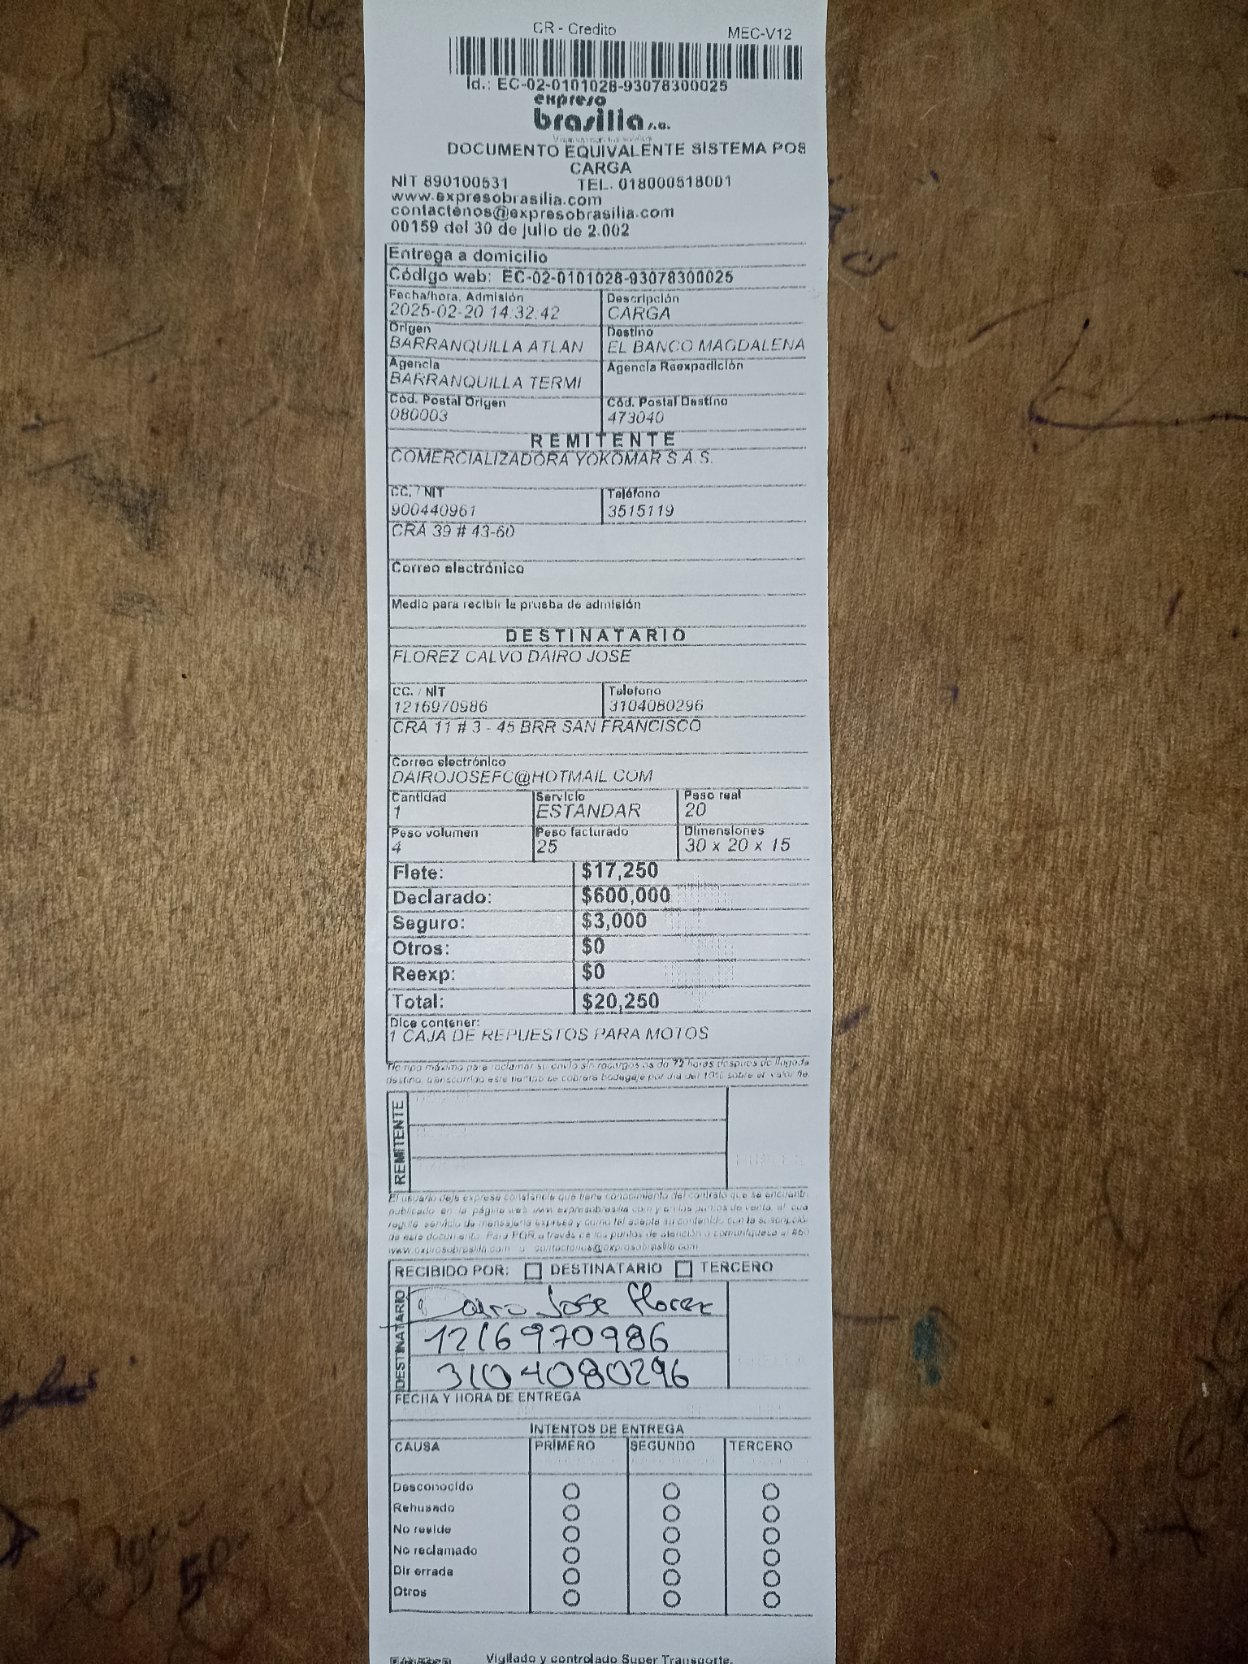 CR - Credito MEC-V12
Id.: EC-02-0101028-93078300025
expreso
brasilia s.a.
DOCUMENTO EQUIVALENTE SISTEMA POS
CARGA
NIT 890100531 TEL. 018000518001
www.expresobrasilia.com
contactenos@expresobrasilia.com
00159 del 30 de julio de 2.002
Entrega a domicilio
Código web: EC-02-0101028-93078300025
Fecha/hora. Admisión Descripción
2025-02-20 14:32:42 CARGA
Origen Destino
BARRANQUILLA ATLAN EL BANCO MAGDALENA
Agencia Agencia Reexpedición
BARRANQUILLA TERMI
Cód. Postal Origen Cód. Postal Destino
080003 473040
REMITENTE
COMERCIALIZADORA YOKOMAR S.A.S.
CC. / NIT Teléfono
900440961 3515119
CRA 39 # 43-60
Correo electrónico
Medio para recibir la prueba de admisión
DESTINATARIO
FLOREZ CALVO DAIRO JOSE
CC. / NIT Telefono
1216970986 3104080296
CRA 11 # 3 - 45 BRR SAN FRANCISCO
Correo electrónico
DAIROJOSEFC@HOTMAIL.COM
Cantidad Servicio Peso real
1 ESTANDAR 20
Peso volumen Peso facturado Dimensiones
4 25 30 x 20 x 15
Flete: $17,250
Declarado: $600,000
Seguro: $3,000
Otros: $0
Reexp: $0
Total: $20,250
Dice contener:
1 CAJA DE REPUESTOS PARA MOTOS
Tiempo máximo para reclamar su envío sin recargos es de 72 horas después de llegada
destino, transcurrido este tiempo se cobrará bodegaje por día del 10% sobre el valor fle
REMITENTE
El usuario deja expresa constancia que tiene conocimiento del contrato que se encuentr
publicado en la página web www.expresobrasilia.com y en los puntos de venta, el cual
regula servicio de mensajería expresa y como tal acepta su contenido con la suscripció
de este documento. Para PQR a través de los puntos de atención o comuníquese al
www.expresobrasilia.com o contactenos@expresobrasilia.com
RECIBIDO POR: DESTINATARIO TERCERO
DESTINATARIO
Dairo Jose Florez
1216970986
3104080296
FECHA Y HORA DE ENTREGA
INTENTOS DE ENTREGA
CAUSA PRIMERO SEGUNDO TERCERO
Desconocido
Rehusado
No reside
No reclamado
Dir errada
Otros
Vigilado y controlado Super Transporte.